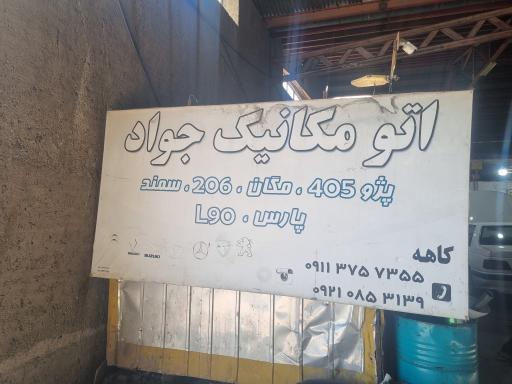 اتو مکانیک جواد
پژو 405 ، مگان ، 206 ، سمند
پارس ، L90
کاهه
۰۹۱۱ ۳۷۵ ۷۳۵۵
۰۹۲۱ ۰۸۵ ۳۱۳۹
SUZUKI